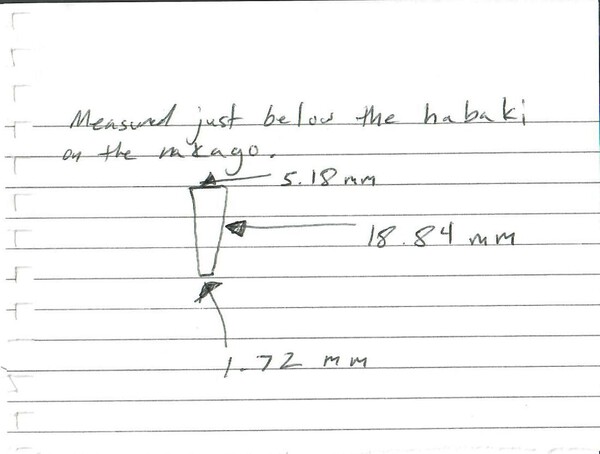 Measured just below the habaki
on the nakago.
5.18 mm
18.84 mm
1.72 mm